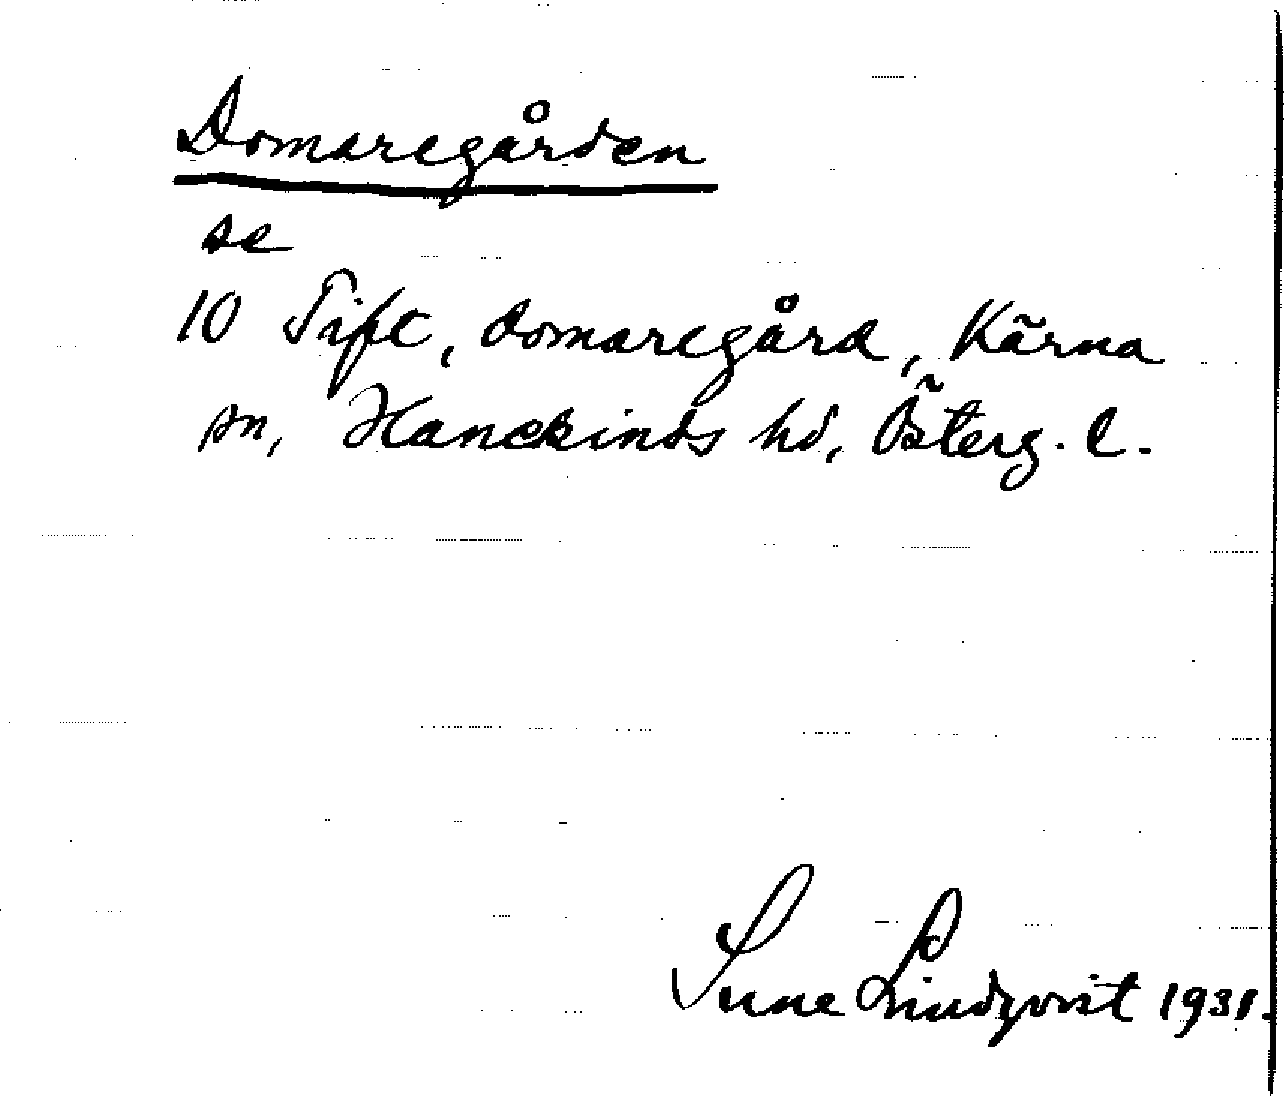 Domaregården
se
10 Tift, domaregård, Kärna
sn, Hanekinds hd, Österg. l.
Sune Lindqvist 1931.